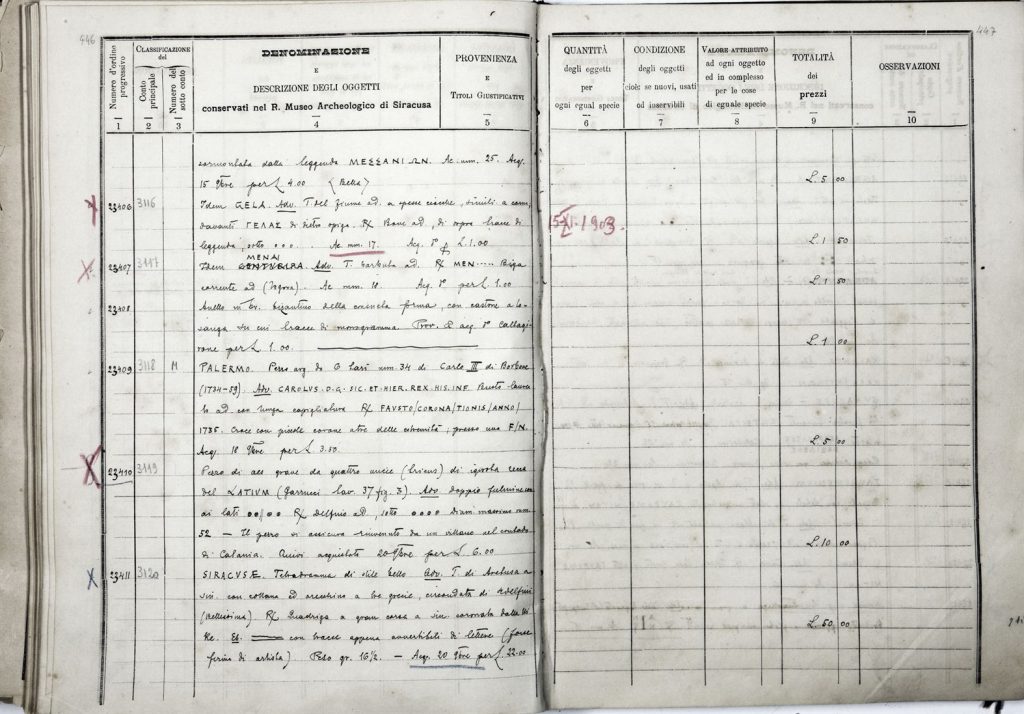 446
Numero d'ordine progressivo
1
CLASSIFICAZIONE
del
Conto principale
2
Numero del sotto conto
3
DENOMINAZIONE
E
DESCRIZIONE DEGLI OGGETTI
conservati nel R. Museo Archeologico di Siracusa
4
PROVENIENZA
E
TITOLI GIUSTIFICATIVI
5
sormontata dalla leggenda MESSANIΩN. Ae. mm. 25. Acq.
15 9bre per L 4.00 (Bella)
23406 3116 Idem GELA. Adv. T. del fiume ad. a spesse ciocche,
davanti ΓΕΛΑΣ di dietro spiga. R/ Bove ad, di sopra tracce di
leggenda, sotto ooo. Ae. mm. 17. Acq. L 1.00
MENAI
23407 3117 Idem CENTVRIPA. Adv. T. barbuta ad. R/ MEN..... Biga
corrente ad (logora). Ae mm. 18 Acq. per L 1.00
23408 Anello in bizantino della forma, con castone a lo-
sanga in cui tracce di monogramma. Prov. e acq. Caltagi-
rone per L. 1.00.
23409 3118 M PALERMO. Pezzo arg. da 6 Tarì mm. 34 di Carlo III di Borbone
(1734-59). Adv. CAROLVS.D.G.SIC.ET.HIER.REX.HIS.INF. Busto
to ad con lunga capigliatura R/ FAVSTO/CORONA/TIONIS/ANNO/
1735. Croce con piccole corone alle estremità, presso una F/N.
Acq. 18 9bre per L 3.50
23410 3119 Pezzo di aes grave da quattro uncie (triens) di ignota zecca
del LATIVM (Garrucci tav. 37 fig. 3). Adv. doppio fulmine con
ai lati oo/oo R/ Delfino ad, sotto oooo Diam. massimo mm
52 — Il pezzo si assicura rinvenuto da un villano nel contado
di Catania. Quivi acquistato 20 9bre per L. 6.00
23411 3120 SIRACVSÆ. Tetradramma di stile bello Adv. T. di Aretusa a
sin. con collana ed orecchino a tre goccie, circondata di 4 delfini
(bellissima). R/ Quadriga a gran corsa a sin. coronata dalla Ni-
ke. Es. con tracce appena avvertibili di lettere (forse
firma di artista) Peso gr. 16½. — Acq. 20 9bre per L. 22.00
447
QUANTITÀ
degli oggetti
per
ogni egual specie
6
CONDIZIONE
degli oggetti
cioè: se nuovi, usati
od inservibili
7
VALORE ATTRIBUITO
ad ogni oggetto
ed in complesso
per le cose
di eguale specie
8
TOTALITÀ
dei
prezzi
9
OSSERVAZIONI
10
L. 5 00
15-XI-1903.
L. 1 50
L. 1 50
L. 1 00
L. 5 00
L. 10 00
L. 50.00